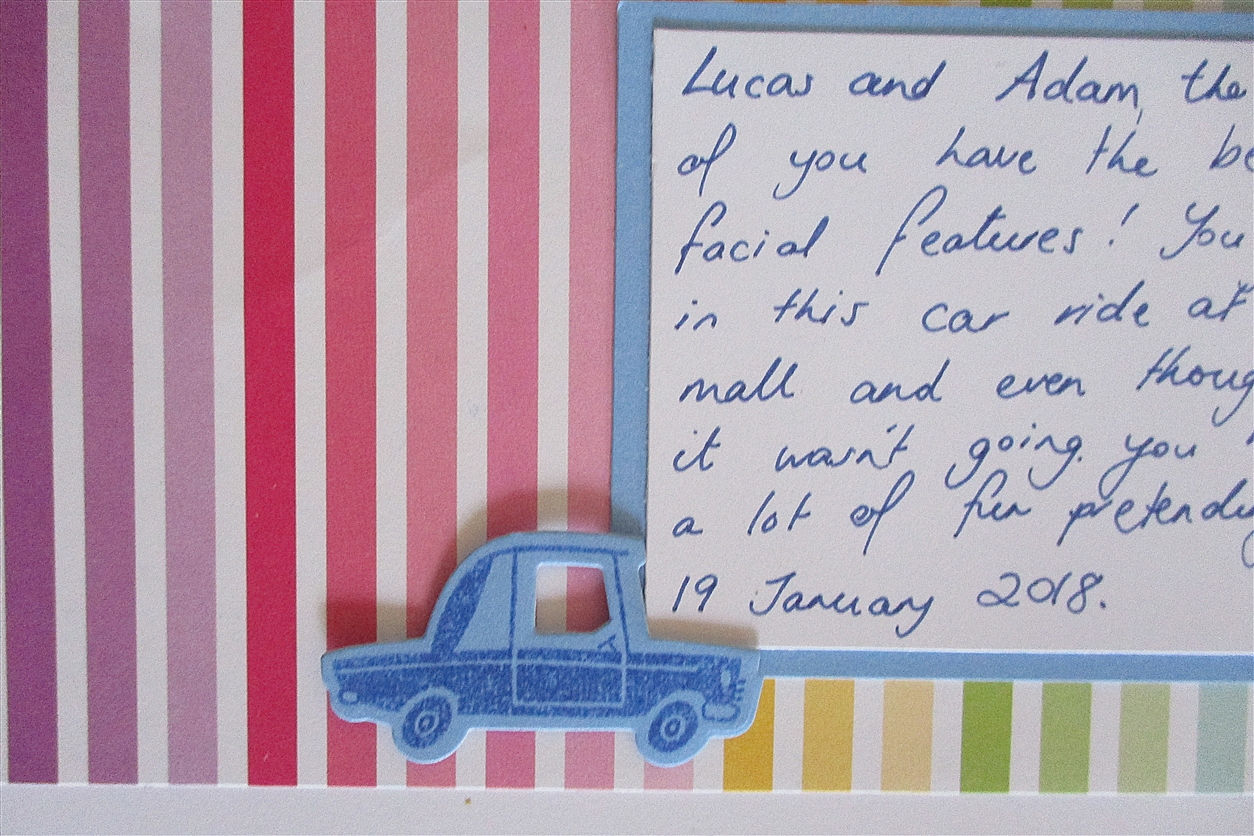 Lucas and Adam, the
of you have the be
facial features! You
in this car ride at
mall and even thoug
it wasn't going you
a lot of fun pretendin
19 January 2018.